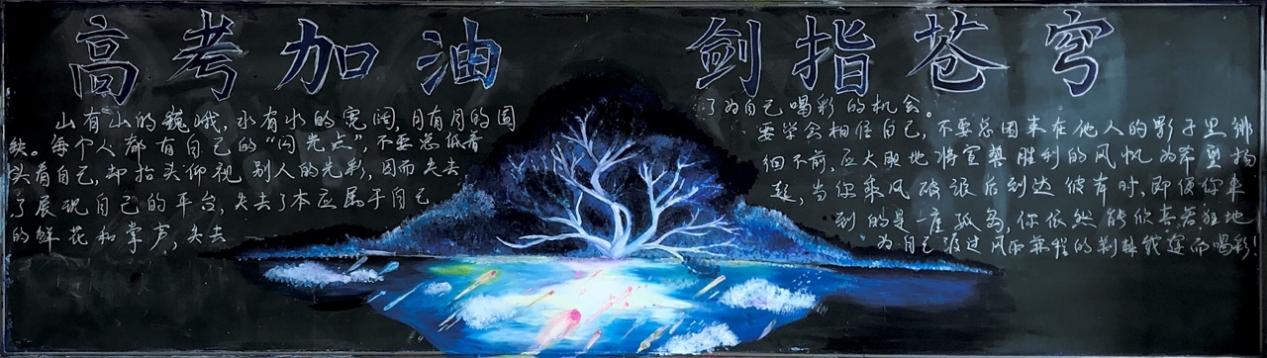 高考加油 剑指苍穹
山有山的巍峨，水有水的宽阔，月有月的圆
缺。每个人都有自己的“闪光点”，不要总低着
头看自己，却抬头仰视别人的光彩，因而失去
了展现自己的平台，失去了本应属于自己
的鲜花和掌声，失去
了为自己喝彩的机会。
要学会相信自己，不要总困来在他人的影子里徘
徊不前，应大胆地将宣誓胜利的风帆为希望扬
起，当你乘风破浪后到达彼岸时，即使你来
到的是一座孤岛，你依然能欣喜若狂地
为自己渡过风雨兼程的荆棘 而喝彩！